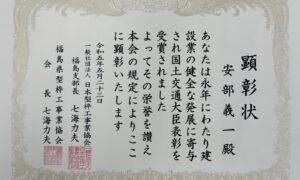 顕彰状
安部義一殿
あなたは永年にわたり建
設業の健全な発展に寄与
され国土交通大臣表彰を
受賞されました
よってその栄誉を讃え
本会の規定によりここ
に顕彰いたします
令和五年五月二十三日
一般社団法人日本型枠工事業協会
福島支部長 七海力夫
福島県型枠工事業協会
会長 七海力夫